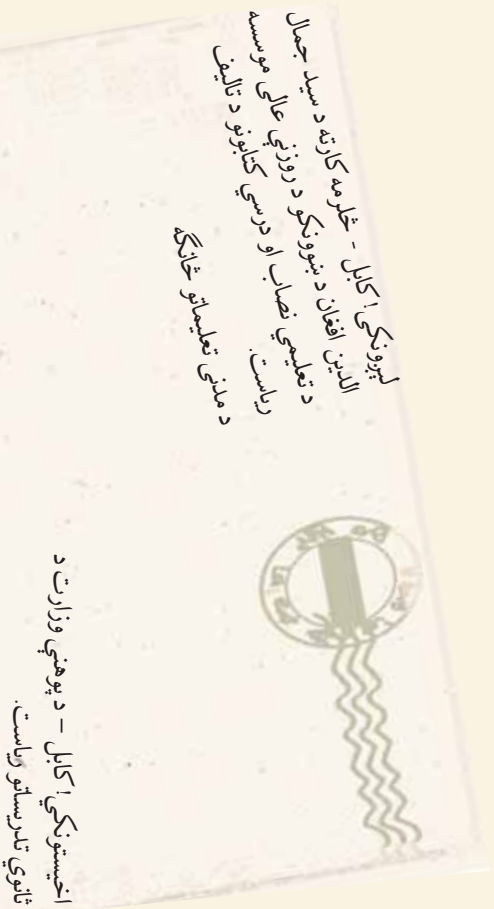 لېږونکی! کابل - څلرمه کارته د سید جمال
الدین افغان د ښوونکو د روزنې عالی موسسه
د تعلیمي نصاب او درسي کتابونو د تالیف
ریاست.
د مدنی تعلیماتو څانگه
اخیستونکی! کابل – د پوهنې وزارت د
ثانوي تدریساتو ریاست.